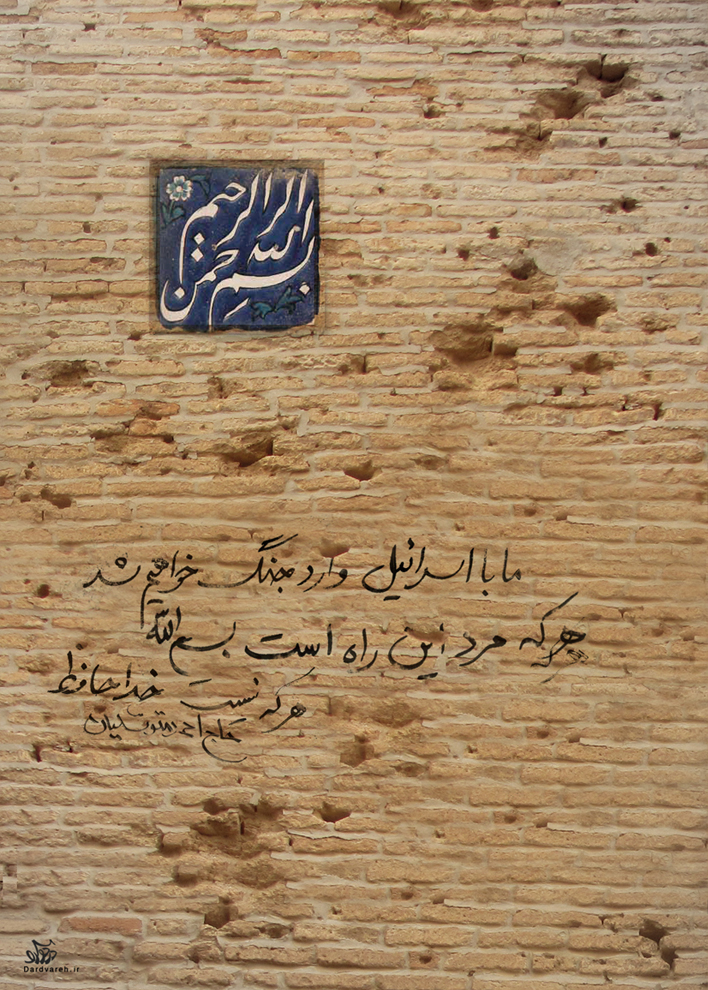 بسم الله الرحمن الرحیم
ما با اسرائیل وارد جنگ خواهیم شد
هر که مرد این راه است بسم الله
هر که نیست خداحافظ
حاج احمد متوسلیان
Dardvareh.ir